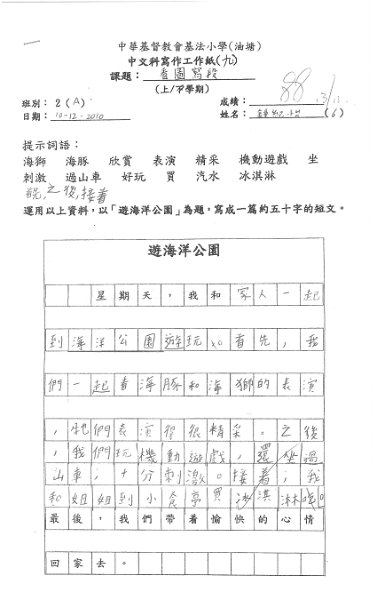 中華基督教會基法小學(油塘)
中文科寫作工作紙(九)
課題：看圖寫段
(上/下學期)
88
班別：2(A) 成績：
日期：10-12-2010 姓名： (6)
提示詞語：
海獅 海豚 欣賞 表演 精采 機動遊戲 坐
刺激 過山車 好玩 買 汽水 冰淇淋
首先,之後,接着
運用以上資料，以「遊海洋公園」為題，寫成一篇約五十字的短文。
遊海洋公園
星期天，我和家人一起
到海洋公園遊玩。首先，我
們一起看海豚和海獅的表演
，牠們表演得很精采。之後
，我們玩機動遊戲，還坐過
山車，十分刺激。接着，我
和姐姐到小食亭買冰淇淋吃。
最後，我們帶着愉快的心情
回家去。